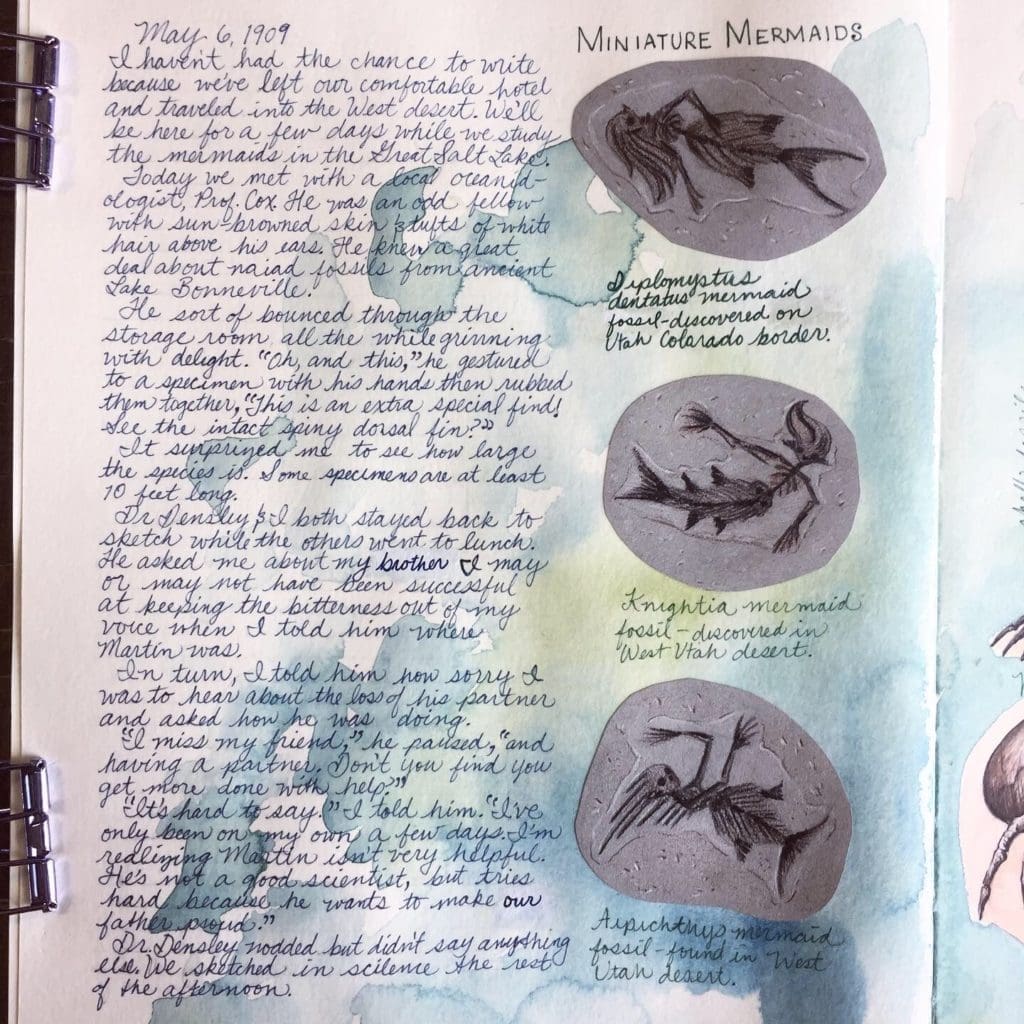 May 6, 1909
I haven't had the chance to write
because we've left our comfortable hotel
and traveled into the West desert. We'll
be here for a few days while we study
the mermaids in the Great Salt Lake.
Today we met with a local oceanid-
ologist, Prof. Cox. He was an odd fellow
with sun-browned skin & tufts of white
hair above his ears. He knew a great
deal about naiad fossils from ancient
Lake Bonneville.
He sort of bounced through the
storage room all the while grinning
with delight. "Oh, and this," he gestured
to a specimen with his hands then rubbed
them together, "This is an extra special find!
See the intact spiny dorsal fin?"
It surprized me to see how large
the species is. Some specimens are at least
10 feet long.
Dr. Densley & I both stayed back to
sketch while the others went to lunch.
He asked me about my brother & I may
or may not have been successful
at keeping the bitterness out of my
voice when I told him where
Martin was.
In turn, I told him how sorry I
was to hear about the loss of his partner
and asked how he was doing.
"I miss my friend," he paused, "and
having a partner. Don't you find you
get more done with help?"
"It's hard to say." I told him. "I've
only been on my own a few days. I'm
realizing Martin isn't very helpful.
He's not a good scientist, but tries
hard because he wants to make our
father proud."
Dr. Densley nodded but didn't say anything
else. We sketched in scilence the rest
of the afternoon.
MINIATURE MERMAIDS
Diplomystus
dentatus mermaid
fossil-discovered on
Utah Colorado border.
Knightia mermaid
fossil - discovered in
West Utah desert.
Aipichthys mermaid
fossil - found in West
Utah desert.